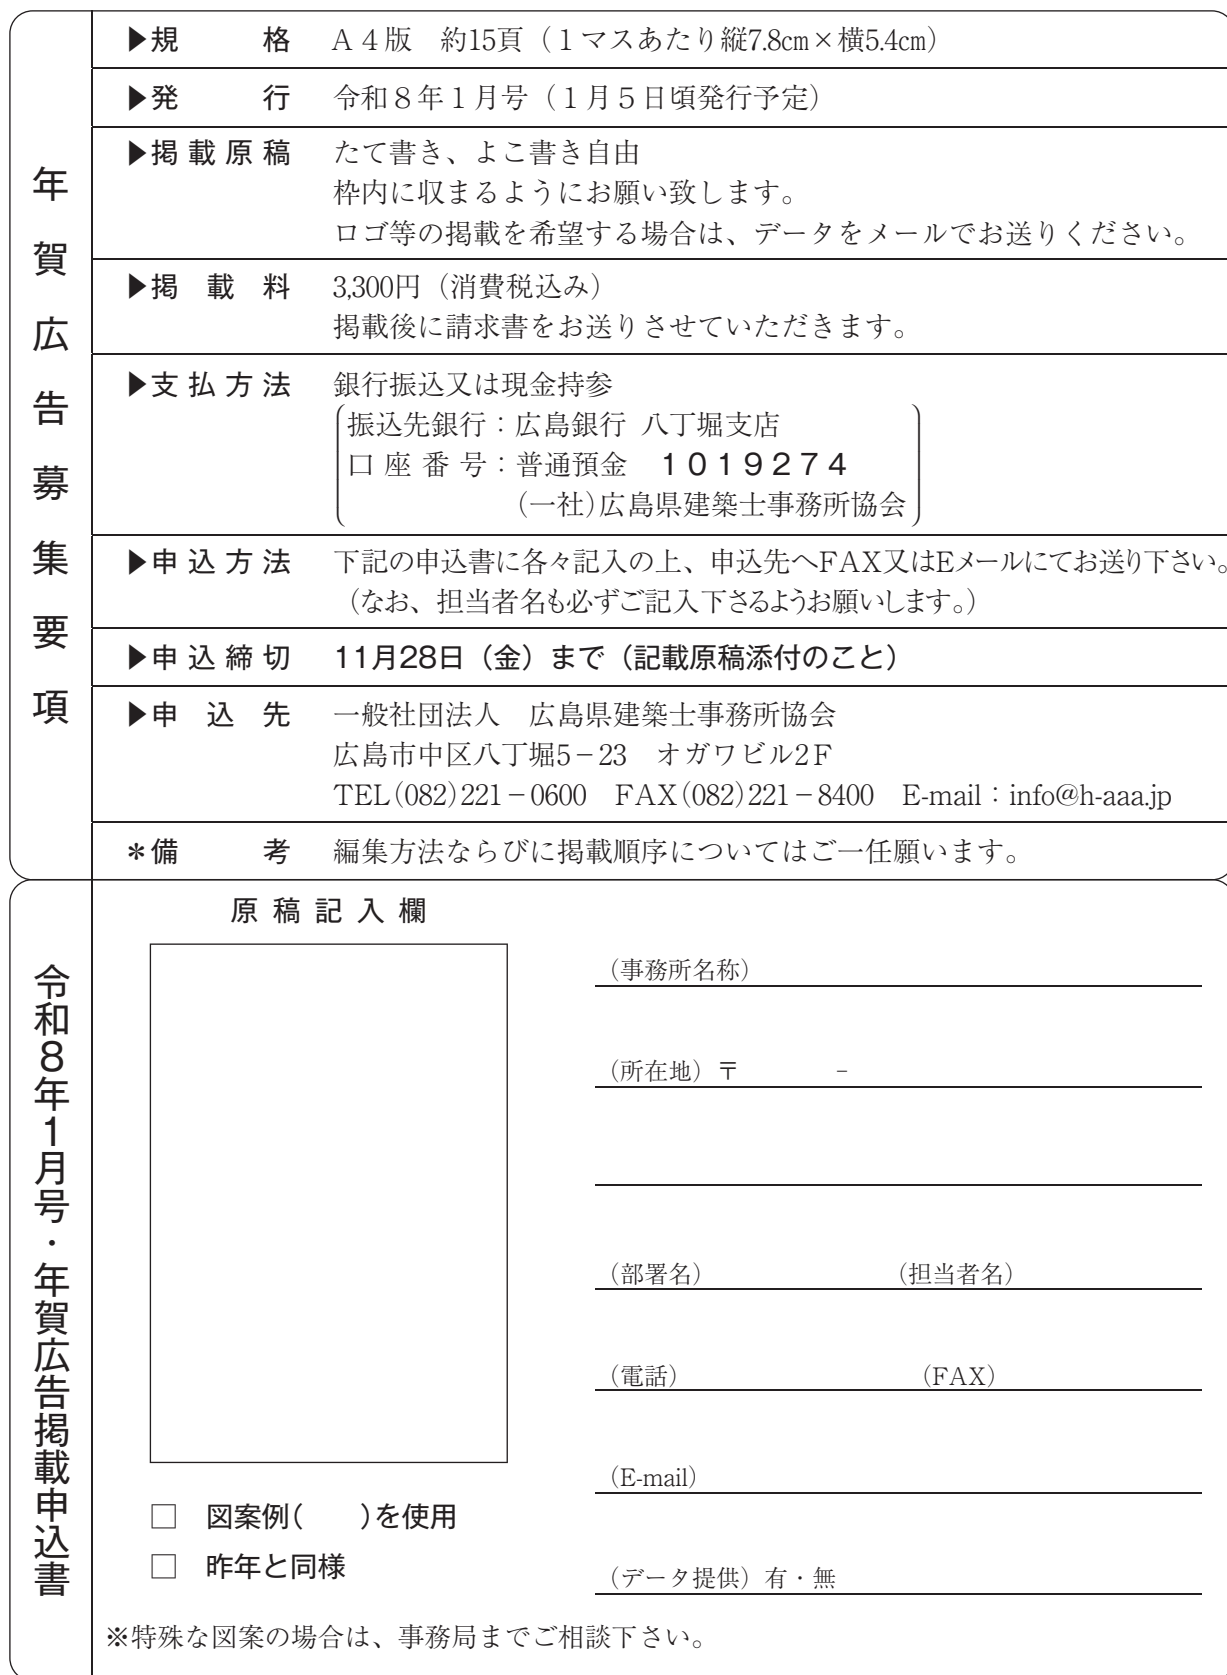 年賀広告募集要項
▶規　格　Ａ４版　約15頁（１マスあたり縦7.8㎝×横5.4㎝）
▶発　行　令和８年１月号（１月５日頃発行予定）
▶掲載原稿　たて書き、よこ書き自由
枠内に収まるようにお願い致します。
ロゴ等の掲載を希望する場合は、データをメールでお送りください。
▶掲載料　3,300円（消費税込み）
掲載後に請求書をお送りさせていただきます。
▶支払方法　銀行振込又は現金持参
振込先銀行：広島銀行 八丁堀支店
口座番号：普通預金　１０１９２７４
(一社)広島県建築士事務所協会
▶申込方法　下記の申込書に各々記入の上、申込先へFAX又はEメールにてお送り下さい。
（なお、担当者名も必ずご記入下さるようお願いします。）
▶申込締切　11月28日（金）まで（記載原稿添付のこと）
▶申込先　一般社団法人　広島県建築士事務所協会
広島市中区八丁堀5－23　オガワビル2Ｆ
TEL(082)221－0600　FAX(082)221－8400　E-mail：info@h-aaa.jp
＊備　考　編集方法ならびに掲載順序についてはご一任願います。
令和８年１月号・年賀広告掲載申込書
原稿記入欄
□　図案例(　　)を使用
□　昨年と同様
（事務所名称）
（所在地）〒　　　－
（部署名）　　　（担当者名）
（電話）　　　（FAX）
（E-mail）
（データ提供）有・無
※特殊な図案の場合は、事務局までご相談下さい。